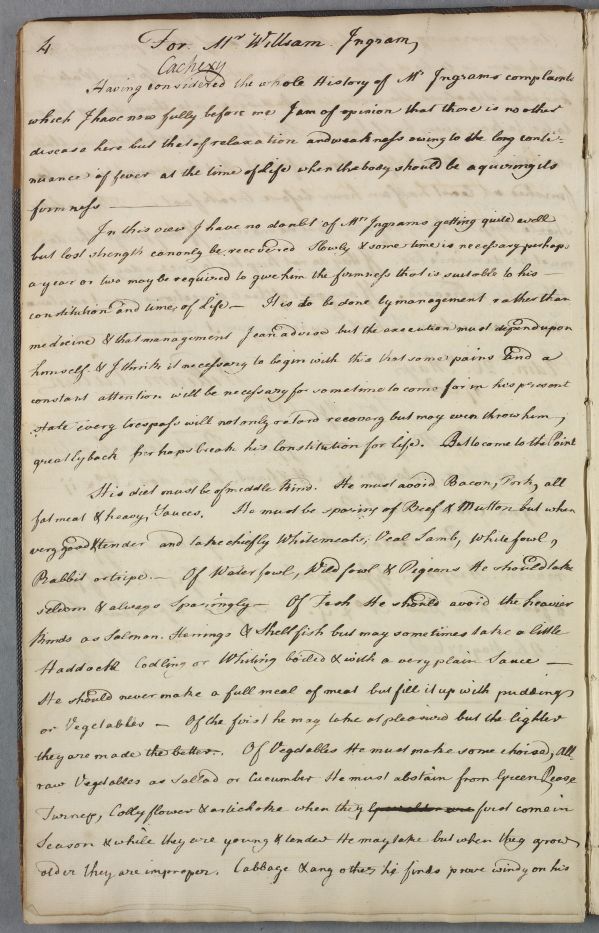 4
For Mr William Ingram,
Cachexy
Having considered the whole History of Mr Ingrams complaints
which I have now fully before me I am of opinion that there is no other
disease here but that of relaxation and weakness owing to the long conti-
nuance of fever at the time of Life when the body should be aquiring its
firmness
In this view I have no doubt of Mr Ingrams getting quite well
but lost strength can only be recovered slowly & some time is necessary perhaps
a year or two may be required to give him the firmness that is suitable to his
constitution and time of Life — It is to be done by management rather than
medicine & that management I can advise but the execution must depend upon
himself & I think it necessary to begin with this that some pains and a
constant attention will be necessary for some time to come for in his present
state every trespass will not only retard recovery but may even throw him
greatly back perhaps break his constitution for life. But to come to the Point
His diet must be of middle kind. He must avoid Bacon, Pork, all
fat meat & heavy Sauces. He must be sparing of Beef & Mutton but when
very good & tender and take chiefly Whitemeats; Veal Lamb, White fowl,
Rabbit or tripe. — Of Water fowl, Wild fowl & Pigeons He should take
seldom & always sparingly — Of Fish He should avoid the heavier
kinds as Salmon. Herrings & Shell fish but may sometimes take a little
Haddock Codling or Whiting boiled & with a very plain Sauce —
He should never make a full meal of meat but fill it up with pudding
or Vegetables — Of the first he may take at pleasure but the lighter
they are made the better. Of Vegetables He must make some choise, all
raw Vegetables as Sallad or Cucumber He must abstain from Green Pease
Turneps, Collyflower & artichoke when they first come in
Season & while they are young & tender He may take but when they grow
older they are improper. Cabbage & any other he finds prove windy on his